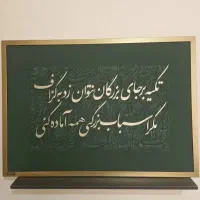 تکیه بر جای بزرگان نتوان زد به گزاف
مگر اسباب بزرگی همه آماده کنی